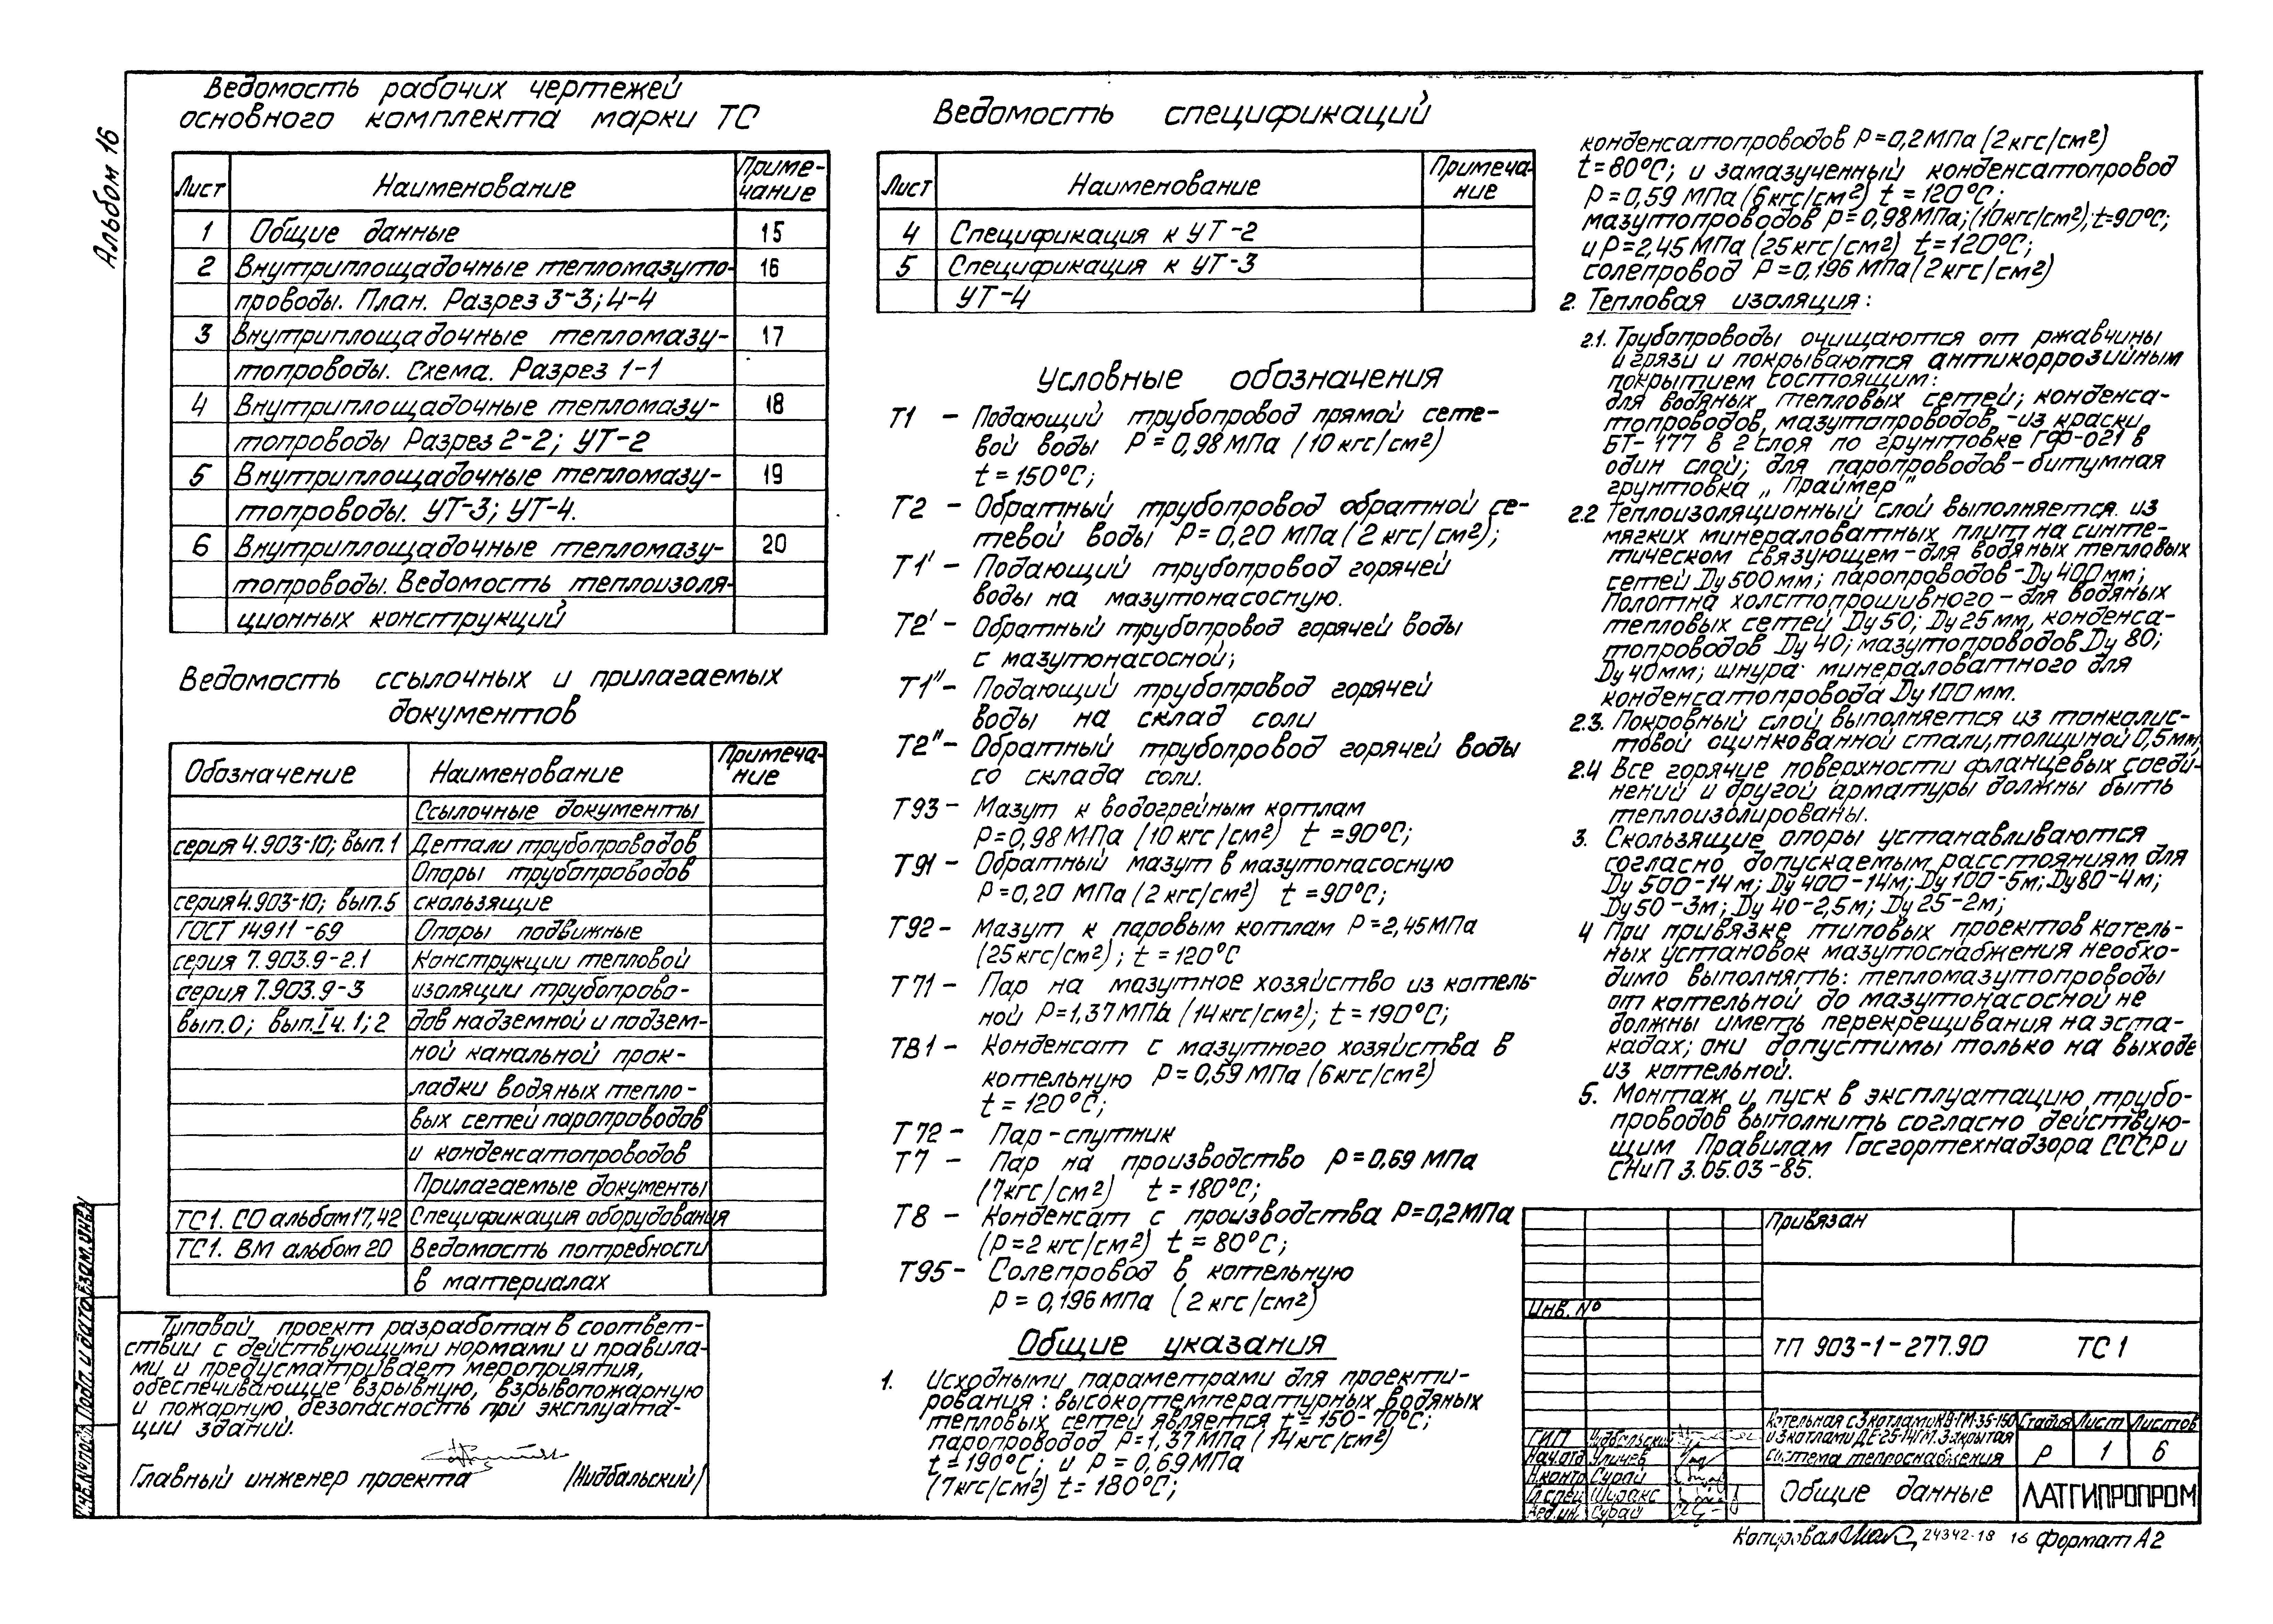 Альбом 16
Ведомость рабочих чертежей
основного комплекта марки ТС
Лист Наименование Примечание
1 Общие данные 15
2 Внутриплощадочные тепломазуто- 16
проводы. План. Разрез 3-3; 4-4
3 Внутриплощадочные тепломазу- 17
топроводы. Схема. Разрез 1-1
4 Внутриплощадочные тепломазу- 18
топроводы Разрез 2-2; УТ-2
5 Внутриплощадочные тепломазу- 19
топроводы. УТ-3; УТ-4.
6 Внутриплощадочные тепломазу- 20
топроводы. Ведомость теплоизоля-
ционных конструкций
Ведомость ссылочных и прилагаемых
документов
Обозначение Наименование Примечание
Ссылочные документы
серия 4.903-10; вып.1 Детали трубопроводов
Опоры трубопроводов
серия 4.903-10; вып.5 скользящие
ГОСТ 14911-69 Опоры подвижные
серия 7.903.9-2.1 Конструкции тепловой
серия 7.903.9-3 изоляции трубопрово-
вып.0; вып.I ч.1; 2 дов надземной и подзем-
ной канальной прок-
ладки водяных тепло-
вых сетей паропроводов
и конденсатопроводов
Прилагаемые документы
ТС1. СО альбом 17,42 Спецификация оборудования
ТС1. ВМ альбом 20 Ведомость потребности
в материалах
Типовой проект разработан в соответ-
ствии с действующими нормами и правила-
ми и предусматривает мероприятия,
обеспечивающие взрывную, взрывопожарную
и пожарную безопасность при эксплуата-
ции зданий.
Главный инженер проекта /Нидбальский/
Инв.№подл. Подп. и дата Взам.инв.№
Ведомость спецификаций
Лист Наименование Примечание
4 Спецификация к УТ-2
5 Спецификация к УТ-3
УТ-4
Условные обозначения
Т1 - Подающий трубопровод прямой сете-
вой воды Р=0,98 МПа (10 кгс/см²)
t=150°С;
Т2 - Обратный трубопровод обратной се-
тевой воды Р=0,20 МПа (2 кгс/см²);
Т1' - Подающий трубопровод горячей
воды на мазутонасосную.
Т2' - Обратный трубопровод горячей воды
с мазутонасосной;
Т1" - Подающий трубопровод горячей
воды на склад соли
Т2" - Обратный трубопровод горячей воды
со склада соли.
Т93 - Мазут к водогрейным котлам
Р=0,98 МПа (10 кгс/см²) t=90°С;
Т91 - Обратный мазут в мазутонасосную
Р=0,20 МПа (2 кгс/см²) t=90°С;
Т92 - Мазут к паровым котлам Р=2,45 МПа
(25 кгс/см²); t=120°С
Т71 - Пар на мазутное хозяйство из котель-
ной Р=1,37 МПа (14 кгс/см²); t=190°С;
Т81 - Конденсат с мазутного хозяйства в
котельную Р=0,59 МПа (6 кгс/см²)
t=120°С;
Т72 - Пар-спутник
Т7 - Пар на производство Р=0,69 МПа
(7 кгс/см²) t=180°С;
Т8 - Конденсат с производства Р=0,2 МПа
(Р=2 кгс/см²) t=80°С;
Т95 - Солепровод в котельную
Р=0,196 МПа (2 кгс/см²)
Общие указания
1. Исходными параметрами для проекти-
рования: высокотемпературных водяных
тепловых сетей является t=150-70°С;
паропроводов Р=1,37 МПа (14 кгс/см²)
t=190°С; и Р=0,69 МПа
(7 кгс/см²) t=180°С;
конденсатопроводов Р=0,2 МПа (2 кгс/см²)
t=80°С; и замазученный конденсатопровод
Р=0,59 МПа (6 кгс/см²) t=120°С;
мазутопроводов Р=0,98 МПа; (10 кгс/см²); t=90°С;
и Р=2,45 МПа (25 кгс/см²) t=120°С;
солепровод Р=0,196 МПа (2 кгс/см²)
2. Тепловая изоляция:
2.1. Трубопроводы очищаются от ржавчины
и грязи и покрываются антикоррозийным
покрытием состоящим:
для водяных тепловых сетей; конденса-
топроводов, мазутопроводов, -из краски
БТ-177 в 2 слоя по грунтовке ГФ-021 в
один слой; для паропроводов-битумная
грунтовка „Праймер"
2.2 Теплоизоляционный слой выполняется из
мягких минераловатных плит на синте-
тическом связующем-для водяных тепловых
сетей Ду 500 мм; паропроводов-Ду 400 мм;
Полотна холстопрошивного-для водяных
тепловых сетей Ду 50; Ду 25 мм, конденса-
топроводов Ду 40; мазутопроводов Ду 80;
Ду 40 мм; шнура минераловатного для
конденсатопровода Ду 100 мм.
2.3. Покровный слой выполняется из тонколис-
товой оцинкованной стали, толщиной 0,5 мм.
2.4 Все горячие поверхности фланцевых соеди-
нений и другой арматуры должны быть
теплоизолированы.
3. Скользящие опоры устанавливаются
согласно допускаемым расстояниям для
Ду 500-14 м; Ду 400-14 м; Ду 100-5 м; Ду 80-4 м;
Ду 50-3 м; Ду 40-2,5 м; Ду 25-2 м;
4 При привязке типовых проектов котель-
ных установок мазутоснабжения необхо-
димо выполнять: тепломазутопроводы
от котельной до мазутонасосной не
должны иметь перекрещивания на эста-
кадах; они допустимы только на выходе
из котельной.
5. Монтаж и пуск в эксплуатацию трубо-
проводов выполнить согласно действую-
щим Правилам Госгортехнадзора СССР и
СНиП 3.05.03-85.
Привязан
Инв. №
ТП 903-1-277.90 ТС1
Котельная с 3 котлами КВ-ГМ-35-150
и 3 котлами ДЕ-25-14ГМ. Закрытая
система теплоснабжения
Стадия Лист Листов
Р 1 6
ГИП Нидбальский
Нач.отд Уличев
Н.контр Сурай
Гл.спец
Вед.ин. Сурай
Общие данные
ЛАТГИПРОПРОМ
Копировал 24342-18 16 Формат А2